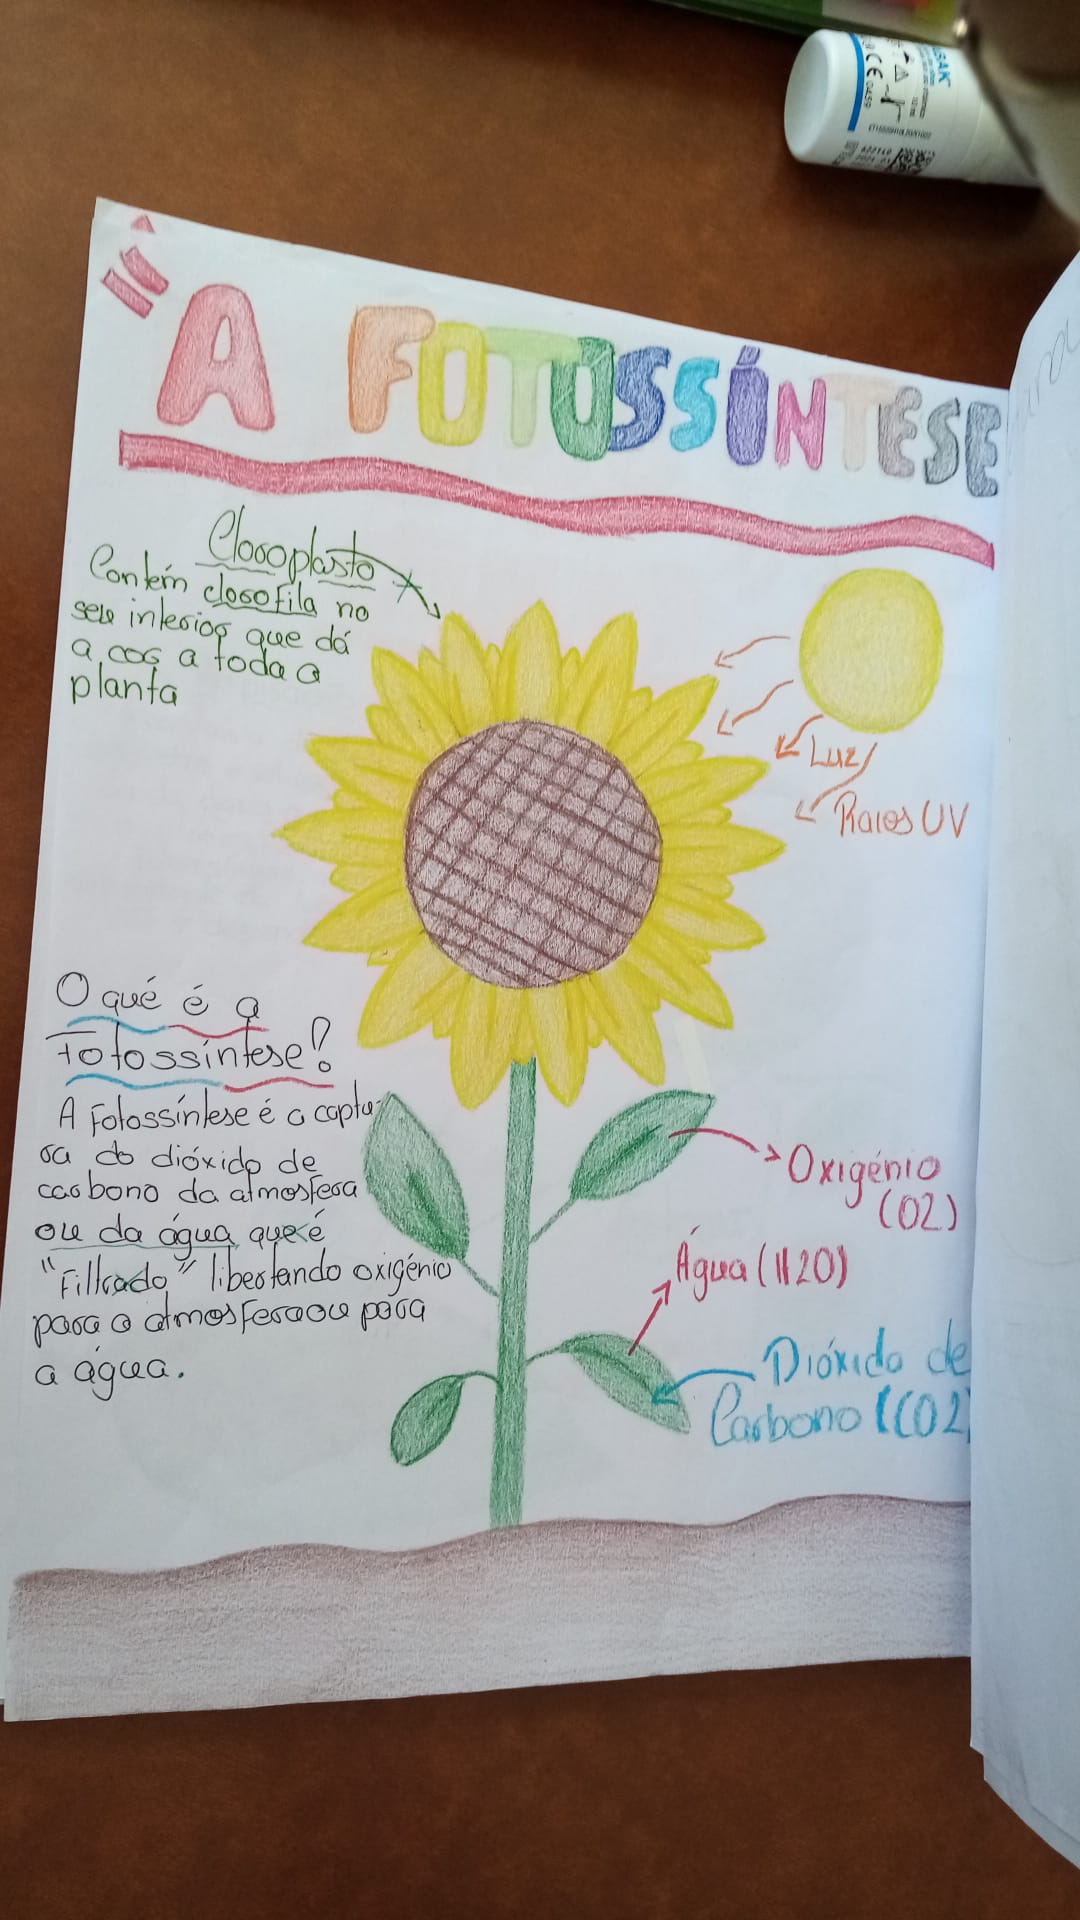 "A FOTOSSÍNTESE
Cloroplasto
Contém clorofila no
seu interior que dá
a cor a toda a
planta
Luz
Raios UV
O qué é a
Fotossíntese?
A Fotossíntese é a captu-
ra do dióxido de
carbono da atmosfera
ou da água que é
"Filtrado" libertando oxigénio
para a atmosfera ou para
a água.
Oxigénio
(O2)
Água (H2O)
Dióxido de
Carbono (CO2)
CE 0459